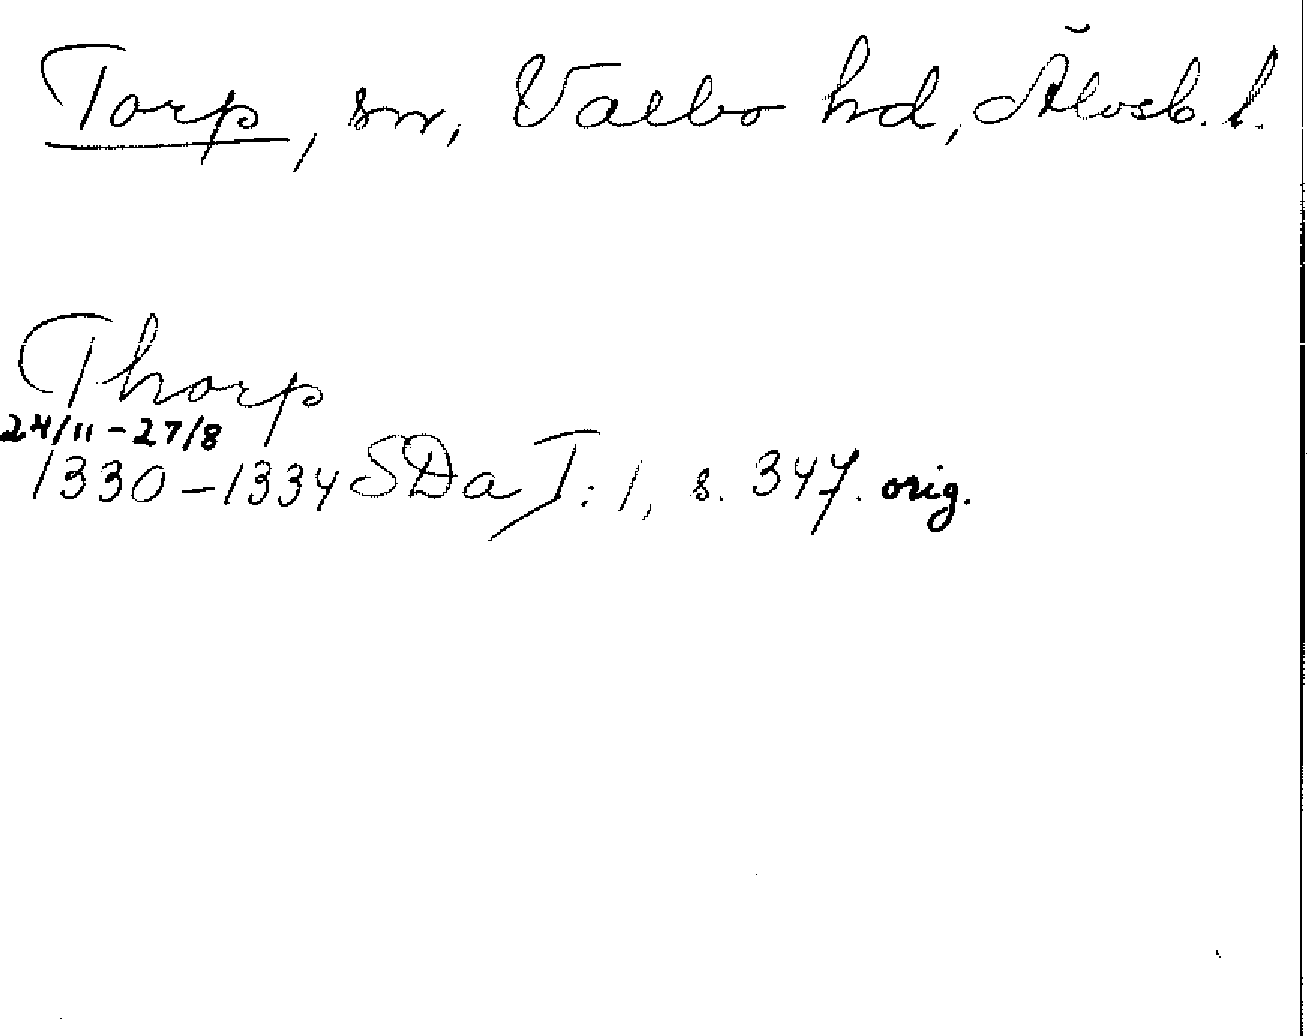 Torp, sn, Valbo hd, Älvsb. l.
Thorp
24/11-27/8
1330-1334 SDa I:1, s. 347. orig.